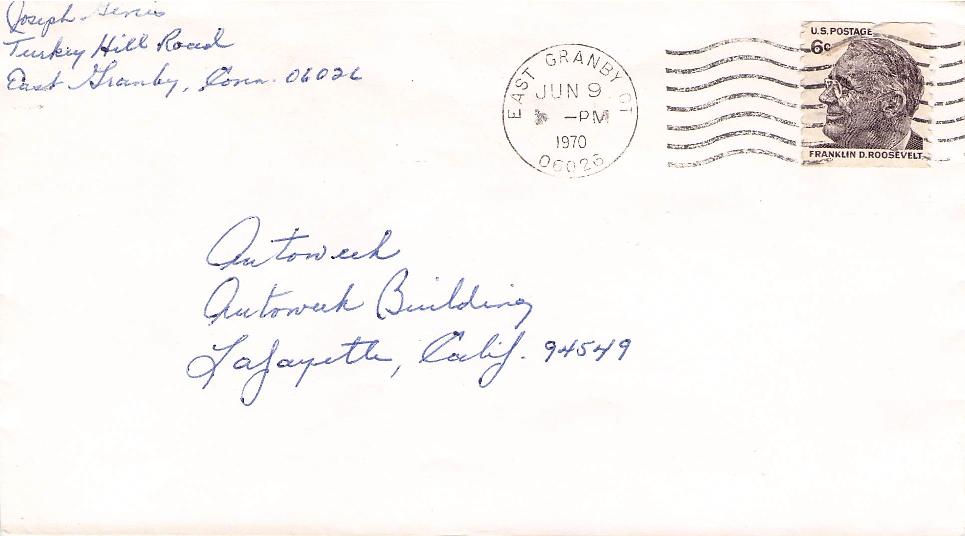 Joseph
Turkey Hill Road
East Granby, Conn. 06026
EAST GRANBY CT
JUN 9
-PM
1970
06026
U.S. POSTAGE
6c
FRANKLIN D. ROOSEVELT
Autoweek
Autoweek Building
Lafayette, Calif. 94549